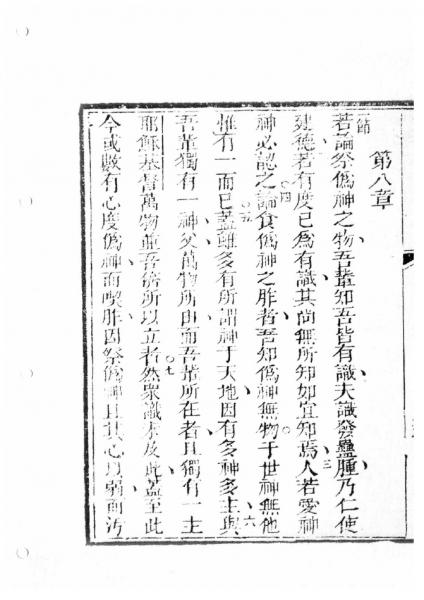 第八章
一節
若論祭僞神之物吾輩知吾皆有識夫識發蠱腫乃仁使
建德若有度已爲有識其尚無所知如宜知焉三人若愛神
四神必認之論食僞神之胙者吾知僞神無物于世神無他
惟有一而已五蓋雖多有所謂神于天地因有多神多主與六
吾輩獨有一神父萬物所由而吾輩所在者且獨有一主
耶穌基督萬物並吾儕所以立者七然衆識未及此蓋至此
今或數有心度僞神而喫胙因祭僞神且其心以弱而汚